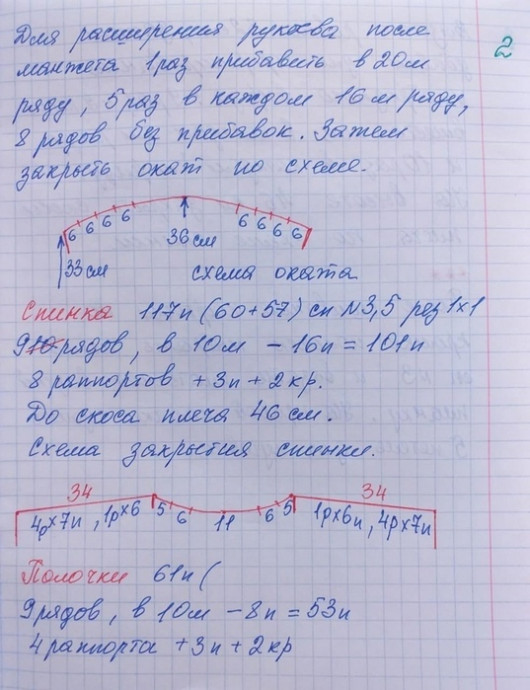 Для расширения рукава после
2
манжета 1 раз прибавить в 20м
ряду, 5 раз в каждом 16м ряду,
8 рядов без прибавок. Затем
закрыть окат по схеме.
6 6 6 6 6 6 6 6
36 см
33 см
схема оката
Спинка 117п (60+57) сп N3,5 рез 1х1
9 рядов, в 10м - 16п = 101п
8 раппортов + 3п + 2 кр.
До скоса плеча 46 см.
Схема закрытия спинки.
34 34
4рх7п, 1рх6 5 6 11 6 5 1рх6п, 4рх7п
Полочки 61п (
9 рядов, в 10м - 8п = 53п
4 раппорта + 3п + 2 кр